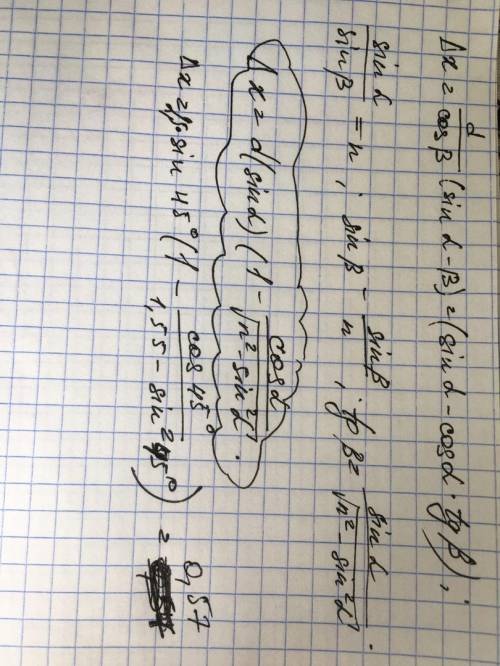 Δx = d/cosβ (sin α - β) = (sin α - cosα · tg β) ;
sin α/sin β = n ; sin β - sin β/n ; tg β = sin α/√(n² - sin²α) .
Δx = d(sin α) (1 - cos α/√(n² - sin²α)) .
sin 45° (1 - cos 45°/1,55 - sin² 45°) = 0,57